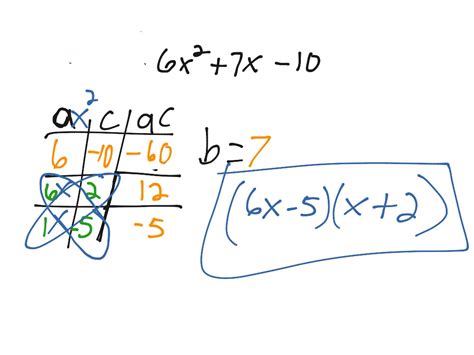 6x²+7x-10
ax² c ac
6 -10 -60
6x 2 12
1x -5 -5
b=7
(6x-5)(x+2)